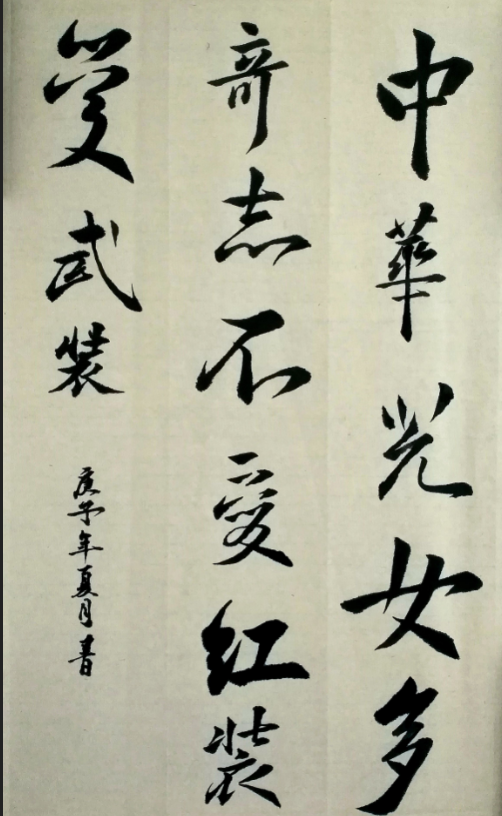 中華兒女多
奇志不愛紅裝
愛武裝
庚子年夏月書